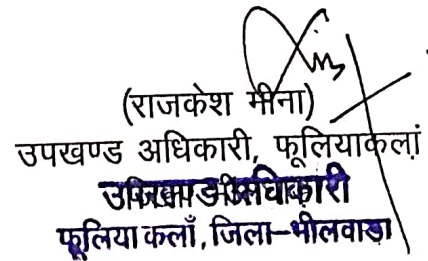 (राजकेश मीना)
उपखण्ड अधिकारी, फूलियाकलां
उपखण्ड अधिकारी
फूलिया कलाँ, जिला-भीलवाड़ा